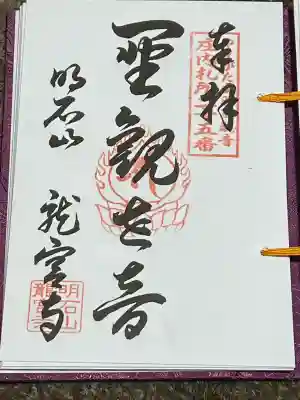 奉拝
庄内札所
五番
聖観世音
明石山
龍宮寺
明石山
龍宮寺